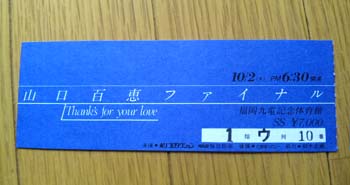 10/2(木) PM 6:30 開演
山口百恵ファイナル
Thanks for your love
福岡九電記念体育館
SS ¥7,000
1 階 ウ 列 10 番